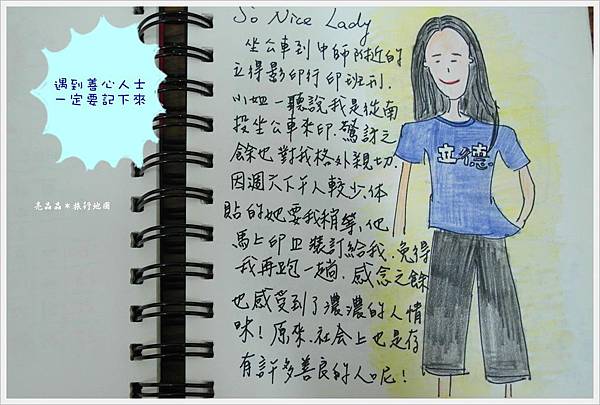 遇到善心人士
一定要記下來
亮晶晶*旅行地圖
So Nice Lady
坐公車到中師附近的
立得影印行印班刊.
小姐一聽說我是從南
投坐公車來印.驚訝之
餘也對我格外親切.
因週六下午人較少.体
貼的她要我稍等,他
馬上印且裝訂給我.免得
我再跑一趟.感念之餘
也感受到了濃濃的人情
味!原來.社会上也是存
有許多善良的人呢!
立德